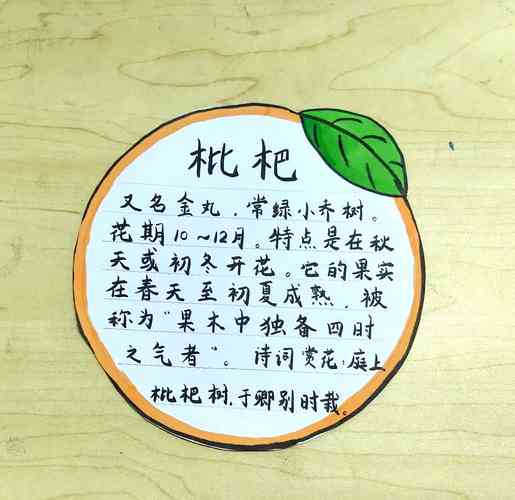 枇杷
又名金丸，常绿小乔树。
花期10~12月。特点是在秋
天或初冬开花。它的果实
在春天至初夏成熟，被
称为“果木中独备四时
之气者”。诗词赏花：庭上
枇杷树，于卿别时栽。